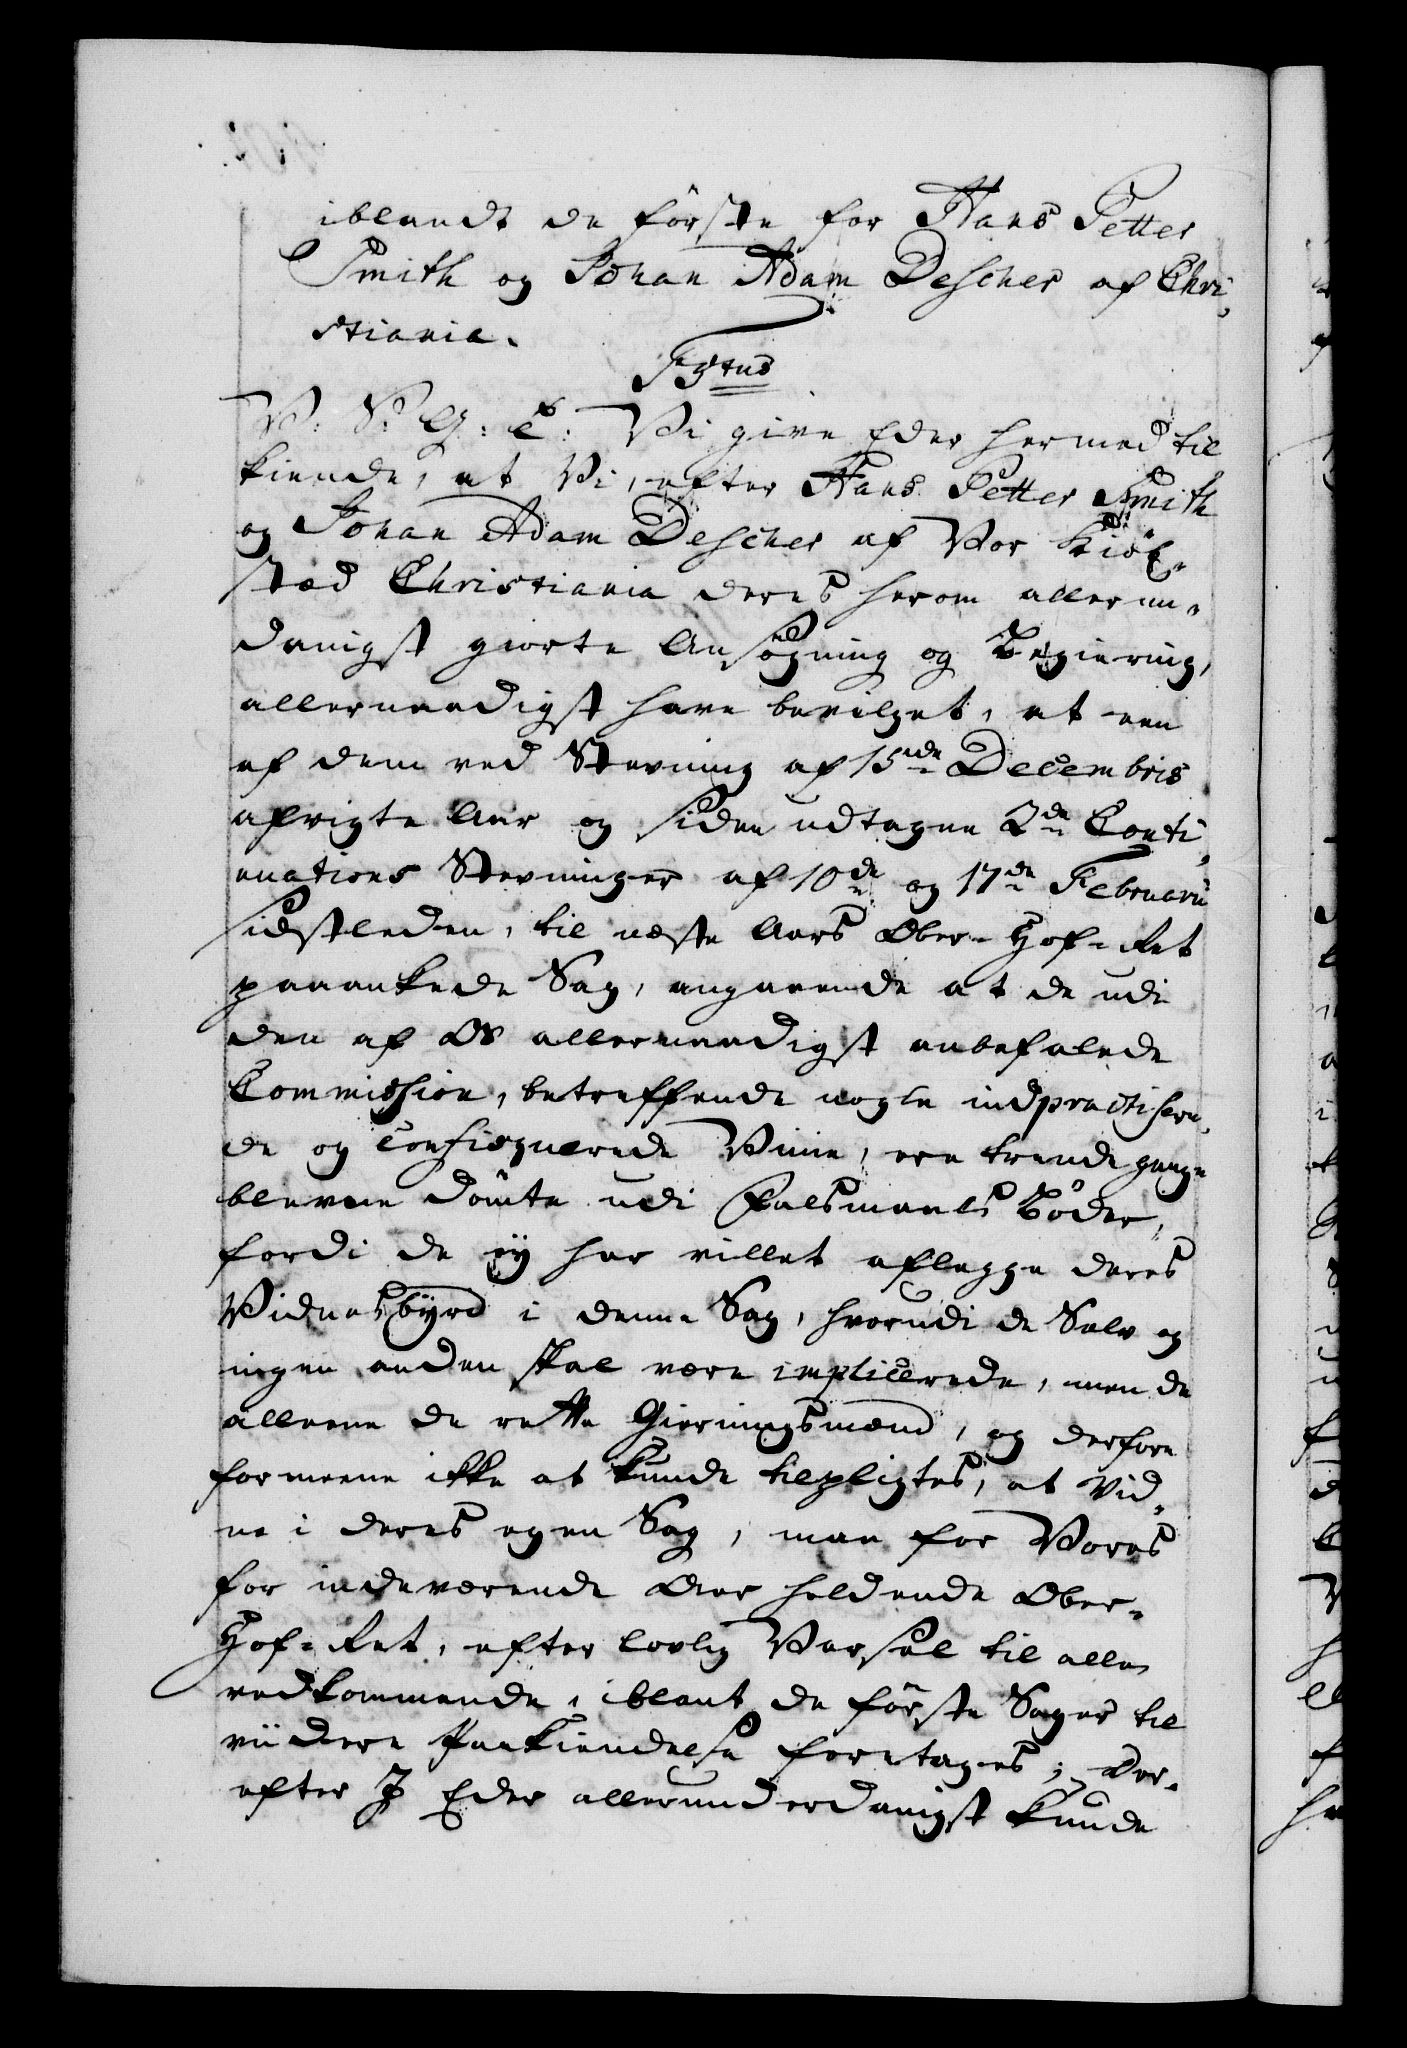 iblandt de förste for Hans Petter
Smith og Johan Adam Descher af Chri,
stiania.
F5tus
V: S: G: T: Vi give Eder hermed til
kiende, at Vi, efter Hans Petter Smith
og Johan Adam Descher af Vor Kiöb-
stæd Christiania deres herom allerun-
danigst giorte Ansögning og Begiering,
allernaadigst have bevilget, at een
af dem ved Stevning af 15de Decembris
afvigte Aar og siden udtagne 2de Conti,
nuations Stevninger af 10de og 17de Februarii
sidstleden, til neste Aars Ober-Hof-Ret
paaankede Sag, angaaende at de udi
den af Os allernaadigst anbefalede
Commission, betreffende nogle indpractisere,
de og confisqverede Viine, ere trende gange
blevne dömte udi Falsmaals Böder,
fordi de ey har villet aflegge deres
Vidnesbyrd i denne Sag, hvorudi de Selv og
ingen anden skal være implicerede, men de
alleene de rette Gierningsmænd, og derfore
formeene ikke at kunde tilpligtes, at vid-
ne i deres egen Sag, maae for Vores
for indeværende Aar holdende Ober-
Hof-Ret, efter lovlig Varsel til alle
vedkommende, iblant de förste Sager til
viidere Paakiendelse foretages; Der-
efter I Eder allerunderdanigst kunde